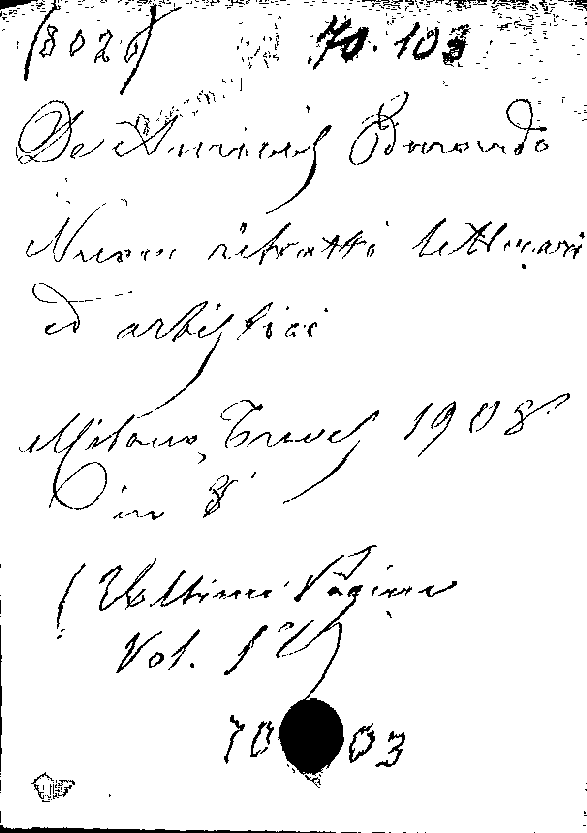 (3026) 70.103
De Amicis Edmondo
Nuovi ritratti letterari
ed artistici
Milano, Treves 1908
in 8°
(Ultime Pagine
Vol. I°)
70 03